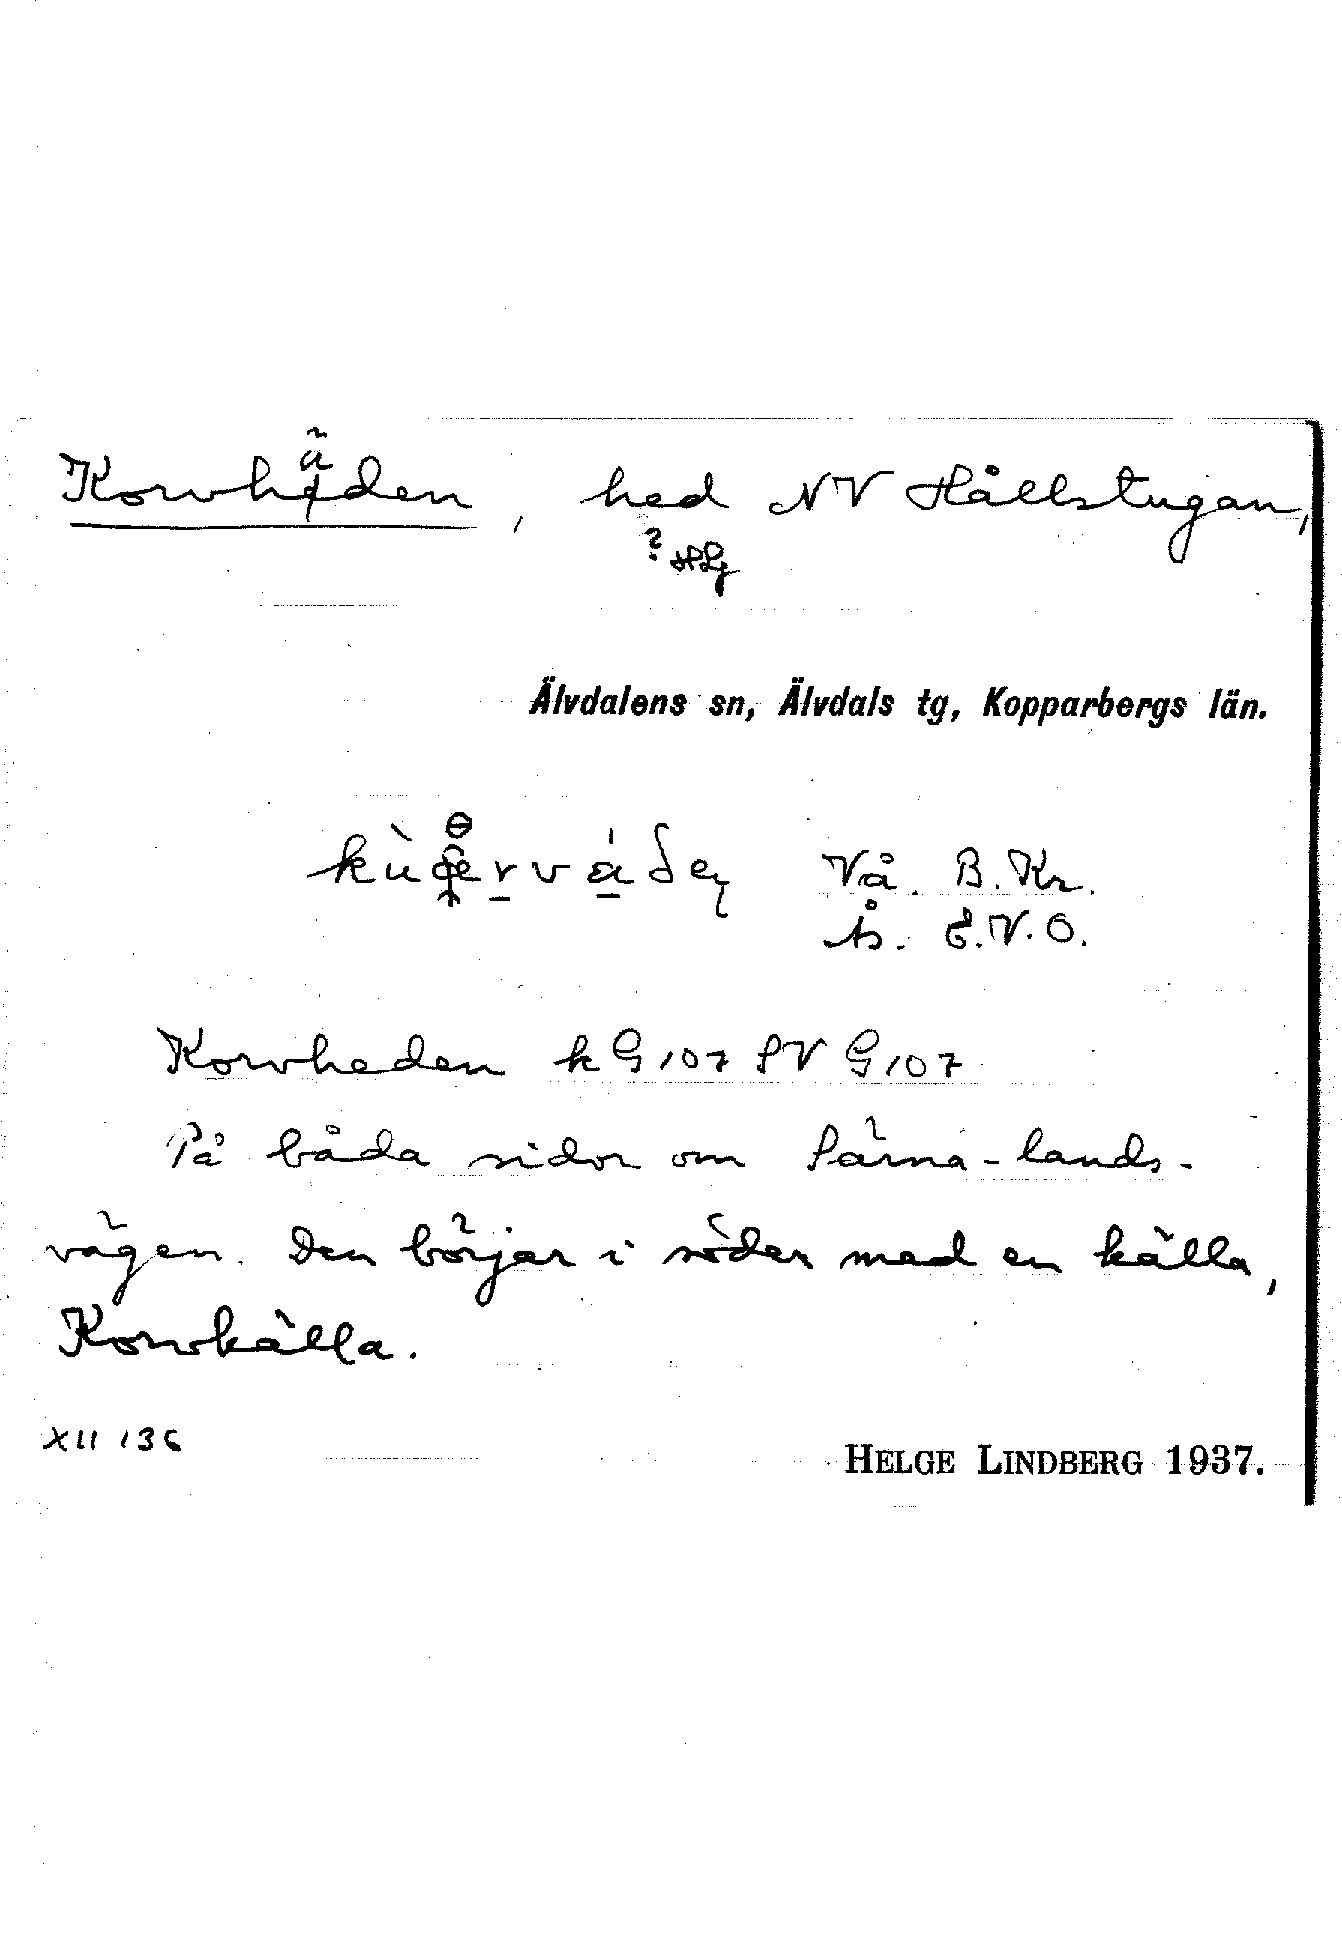 Korvhäden, hed NV Hållstugan,
? HLg
Älvdalens sn, Älvdals tg, Kopparbergs län.
Vå. B. Kr.
Ås. E.V.O.
Korvheden k G107 SV G107
På båda sidor om Särna-lands-
vägen. Den börjar i söder med en källa,
Korvkälla.
XII 136
HELGE LINDBERG 1937.